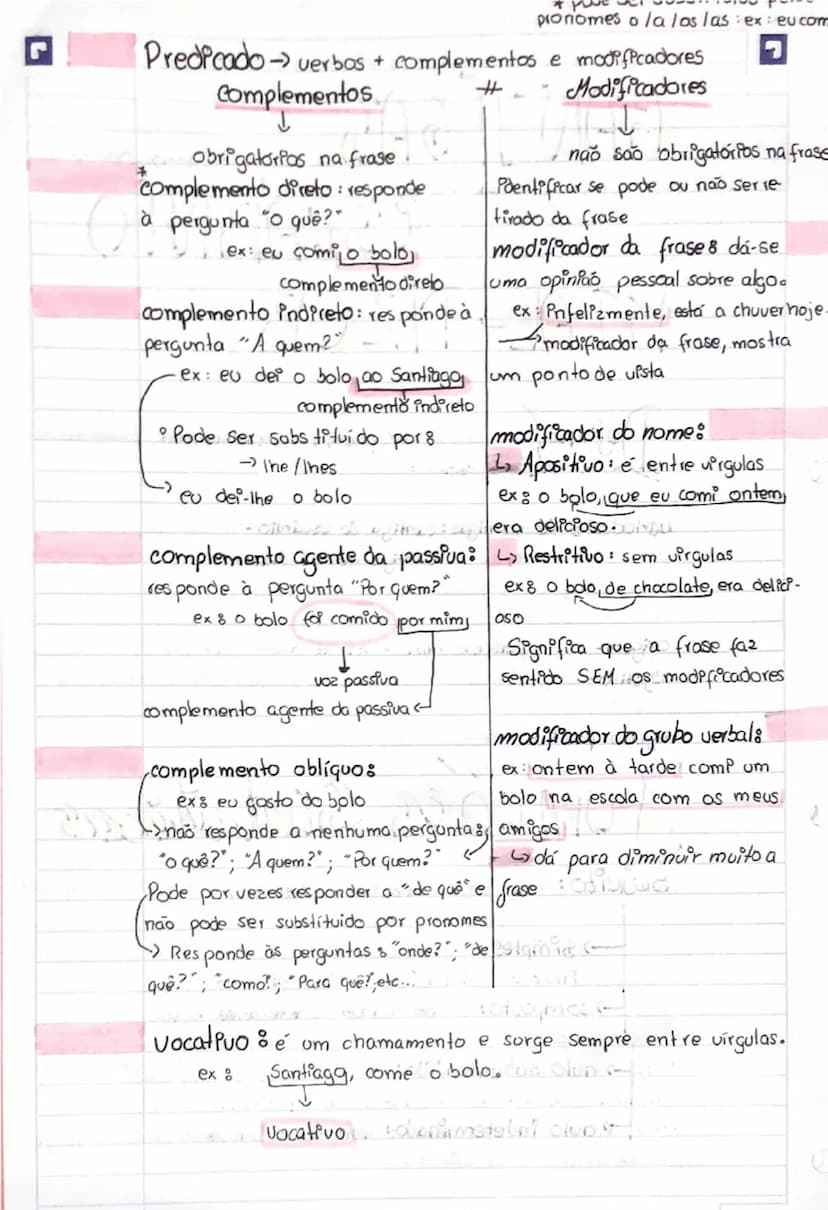 * pode ser
pronomes o/a/os/as : ex : eu com
Predicado → verbos + complementos e modificadores
Complementos
≠
Modificadores
obrigatórios na frase
* complemento direto : responde
à pergunta "O quê?"
ex: eu comi o bolo
complemento direto
complemento indireto : responde à
pergunta "A quem?"
ex: eu dei o bolo ao Santiago
complemento indireto
° Pode ser substituido por:
→ lhe / lhes
→ eu dei-lhe o bolo
complemento agente da passiva:
responde à pergunta "Por quem?"
ex: o bolo foi comido por mim
voz passiva
complemento agente da passiva
complemento oblíquo:
ex: eu gosto do bolo
→ não responde a nenhuma pergunta:
"o quê?"; "A quem?"; "Por quem?"
Pode por vezes responder a "de quê" e
não pode ser substituido por pronomes
→ Responde às perguntas: "onde?"; "de
quê?"; "como?; "Para quê?",etc...
não são obrigatórios na frase
identificar se pode ou não ser re-
tirado da frase
modificador da frase: dá-se
uma opinião pessoal sobre algo.
ex: infelizmente, está a chuver hoje.
→ modificador da frase, mostra
um ponto de vista
modificador do nome:
↳ Apositivo: é entre vírgulas
ex: o bolo, que eu comi ontem,
era delicioso.
↳ Restritivo: sem vírgulas
ex: o bolo, de chocolate, era delici-
oso
Significa que a frase faz
sentido SEM os modificadores
modificador do grubo verbal:
ex: ontem à tarde comi um
bolo na escola com os meus
amigos
↳ dá para diminuir muito a
frase
Vocativo: é um chamamento e sorge sempre entre vírgulas.
ex: Santiago, come o bolo.
Vocativo